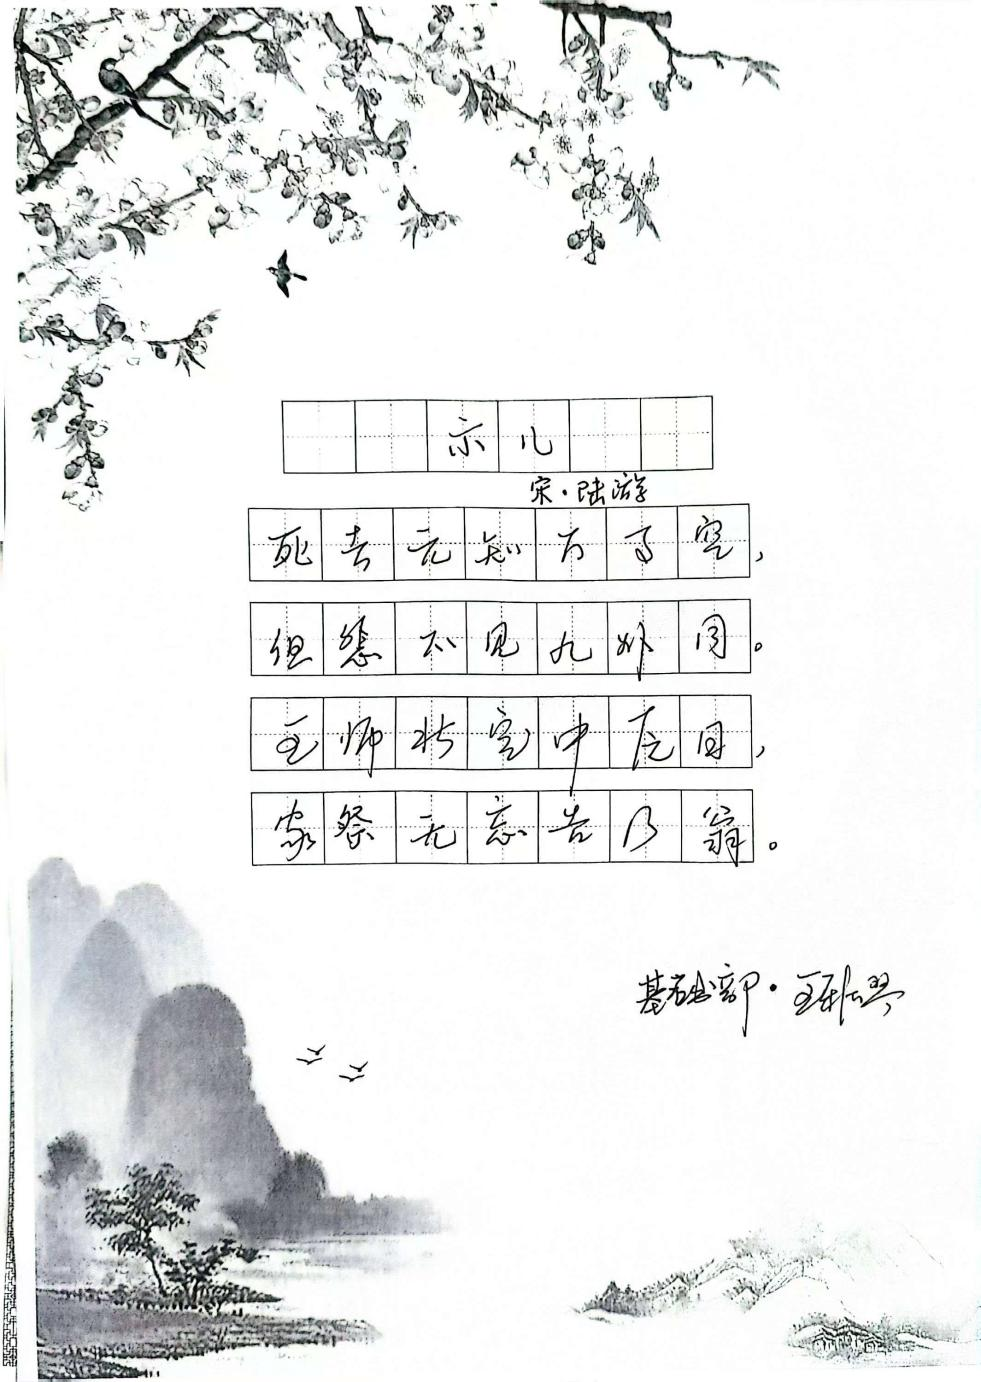 示儿
宋·陆游
死去元知万事空,
但悲不见九州同。
王师北定中原日,
家祭无忘告乃翁。
基础部·王